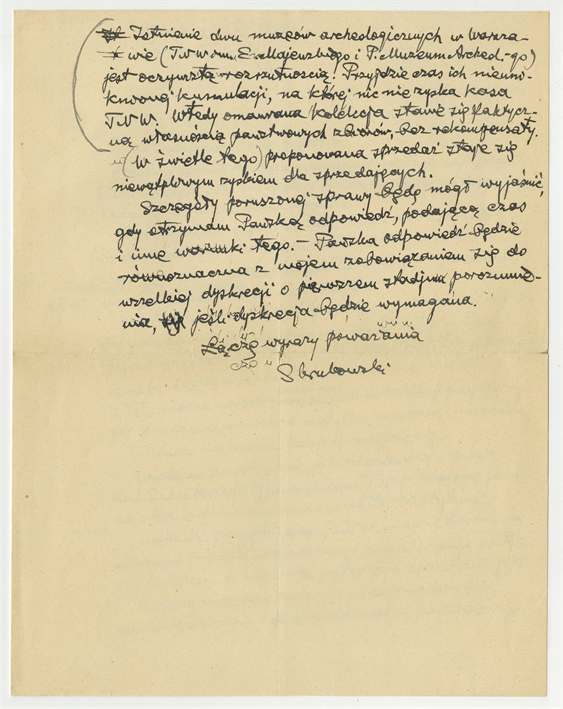 Istnienie dwu muzeów archeologicznych w Warsza-
wie (TNW im. E. Majewskiego i P. Muzeum Archeol.-go)
jest oczywistą rozrzutnością. Przyjdzie czas ich nieuni-
knionej kumulacji, na której nic nie zyska kasa
TNW. Wtedy omawiana kolekcja stanie się faktycz-
ną własnością państwowych zbiorów bez rekompensaty.
(W świetle tego) proponowana sprzedaż staje się
niewątpliwym zyskiem dla sprzedających.
Szczegóły poruszonej sprawy będę mógł wyjaśnić,
gdy otrzymam Pańską odpowiedź, podającą czas
i inne warunki tego. — Pańska odpowiedź będzie
równoznaczna z mojem zobowiązaniem się do
wszelkiej dyskrecji o pierwszem stadjum porozumie-
nia, jeśli dyskrecja będzie wymagana.
Łączę wyrazy poważania